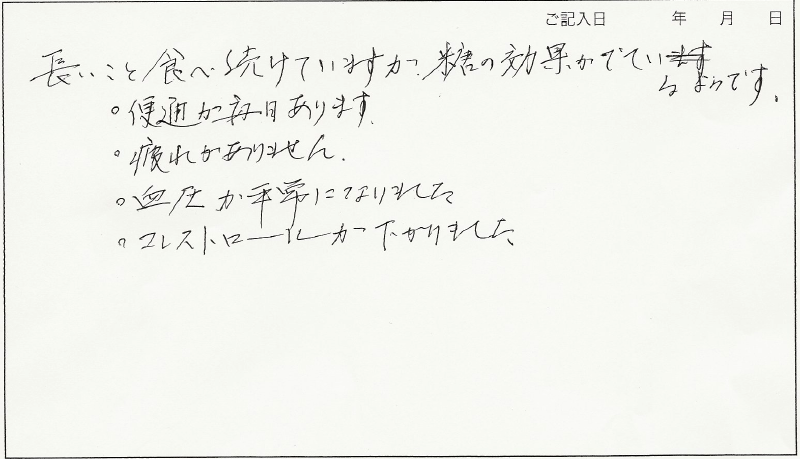 ご記入日 年 月 日
長いこと食べ続けていますが、糖の効果がでている
ようです。
○便通が毎日あります。
○疲れがありません。
○血圧が平常になりました
○コレストロールが下がりました